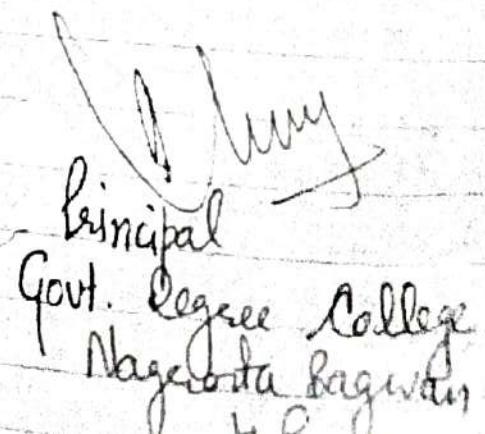 Principal
Govt. Degree College
Nagrota Bagwan